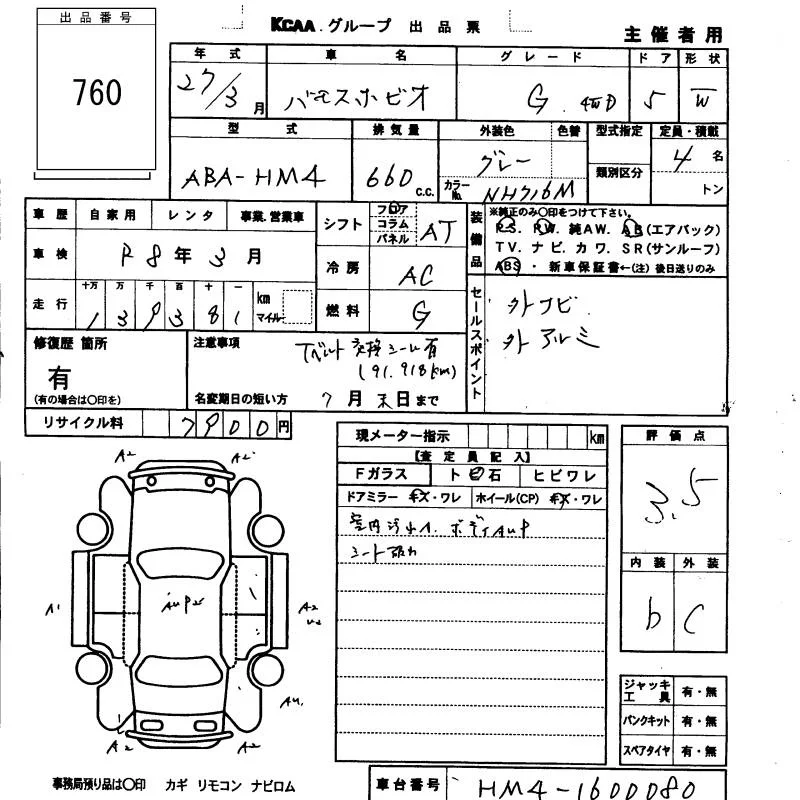 出品番号
760
KCAA.グループ 出品票
主催者用
年式 車名 グレード ドア 形状
27/3月 バモスホビオ G 4WD 5 W
型式 排気量 外装色 色替 型式指定 定員・積載
ABA-HM4 660 c.c. グレー 4名
類別区分
カラーNo. NH716M トン
車歴 自家用 レンタ 事業.営業車
車検 R8年3月
走行 十万 万 千 百 十 一 km マイル
1 3 9 3 8 1
シフト フロア コラム パネル AT
冷房 AC
燃料 G
装備品
※純正のみ〇印をつけて下さい。
P.S. P.W. 純AW. AB(エアバック)
TV. ナビ. カワ. SR(サンルーフ)
ABS ・ 新車保証書←(注)後日送りのみ
セールスポイント
外ナビ
外アルミ
修復歴 箇所
有
(有の場合は〇印を)
注意事項
Tベルト交換シール有
(91,918km)
名変期日の短い方 7月末日まで
リサイクル料 7900円
現メーター指示 km
【査定員記入】
Fガラス ト石 ヒビワレ
ドアミラー キズ・ワレ ホイール(CP) キズ・ワレ
室内汚れ. ボディAUP
評価点
3.5
内装 外装
b C
A2 A2
A1 AUP A2
AU.
A2 A2
ジャッキ工具 有・無
パンクキット 有・無
スペアタイヤ 有・無
事務局預り品は〇印 カギ リモコン ナビロム
車台番号 HM4-1600080